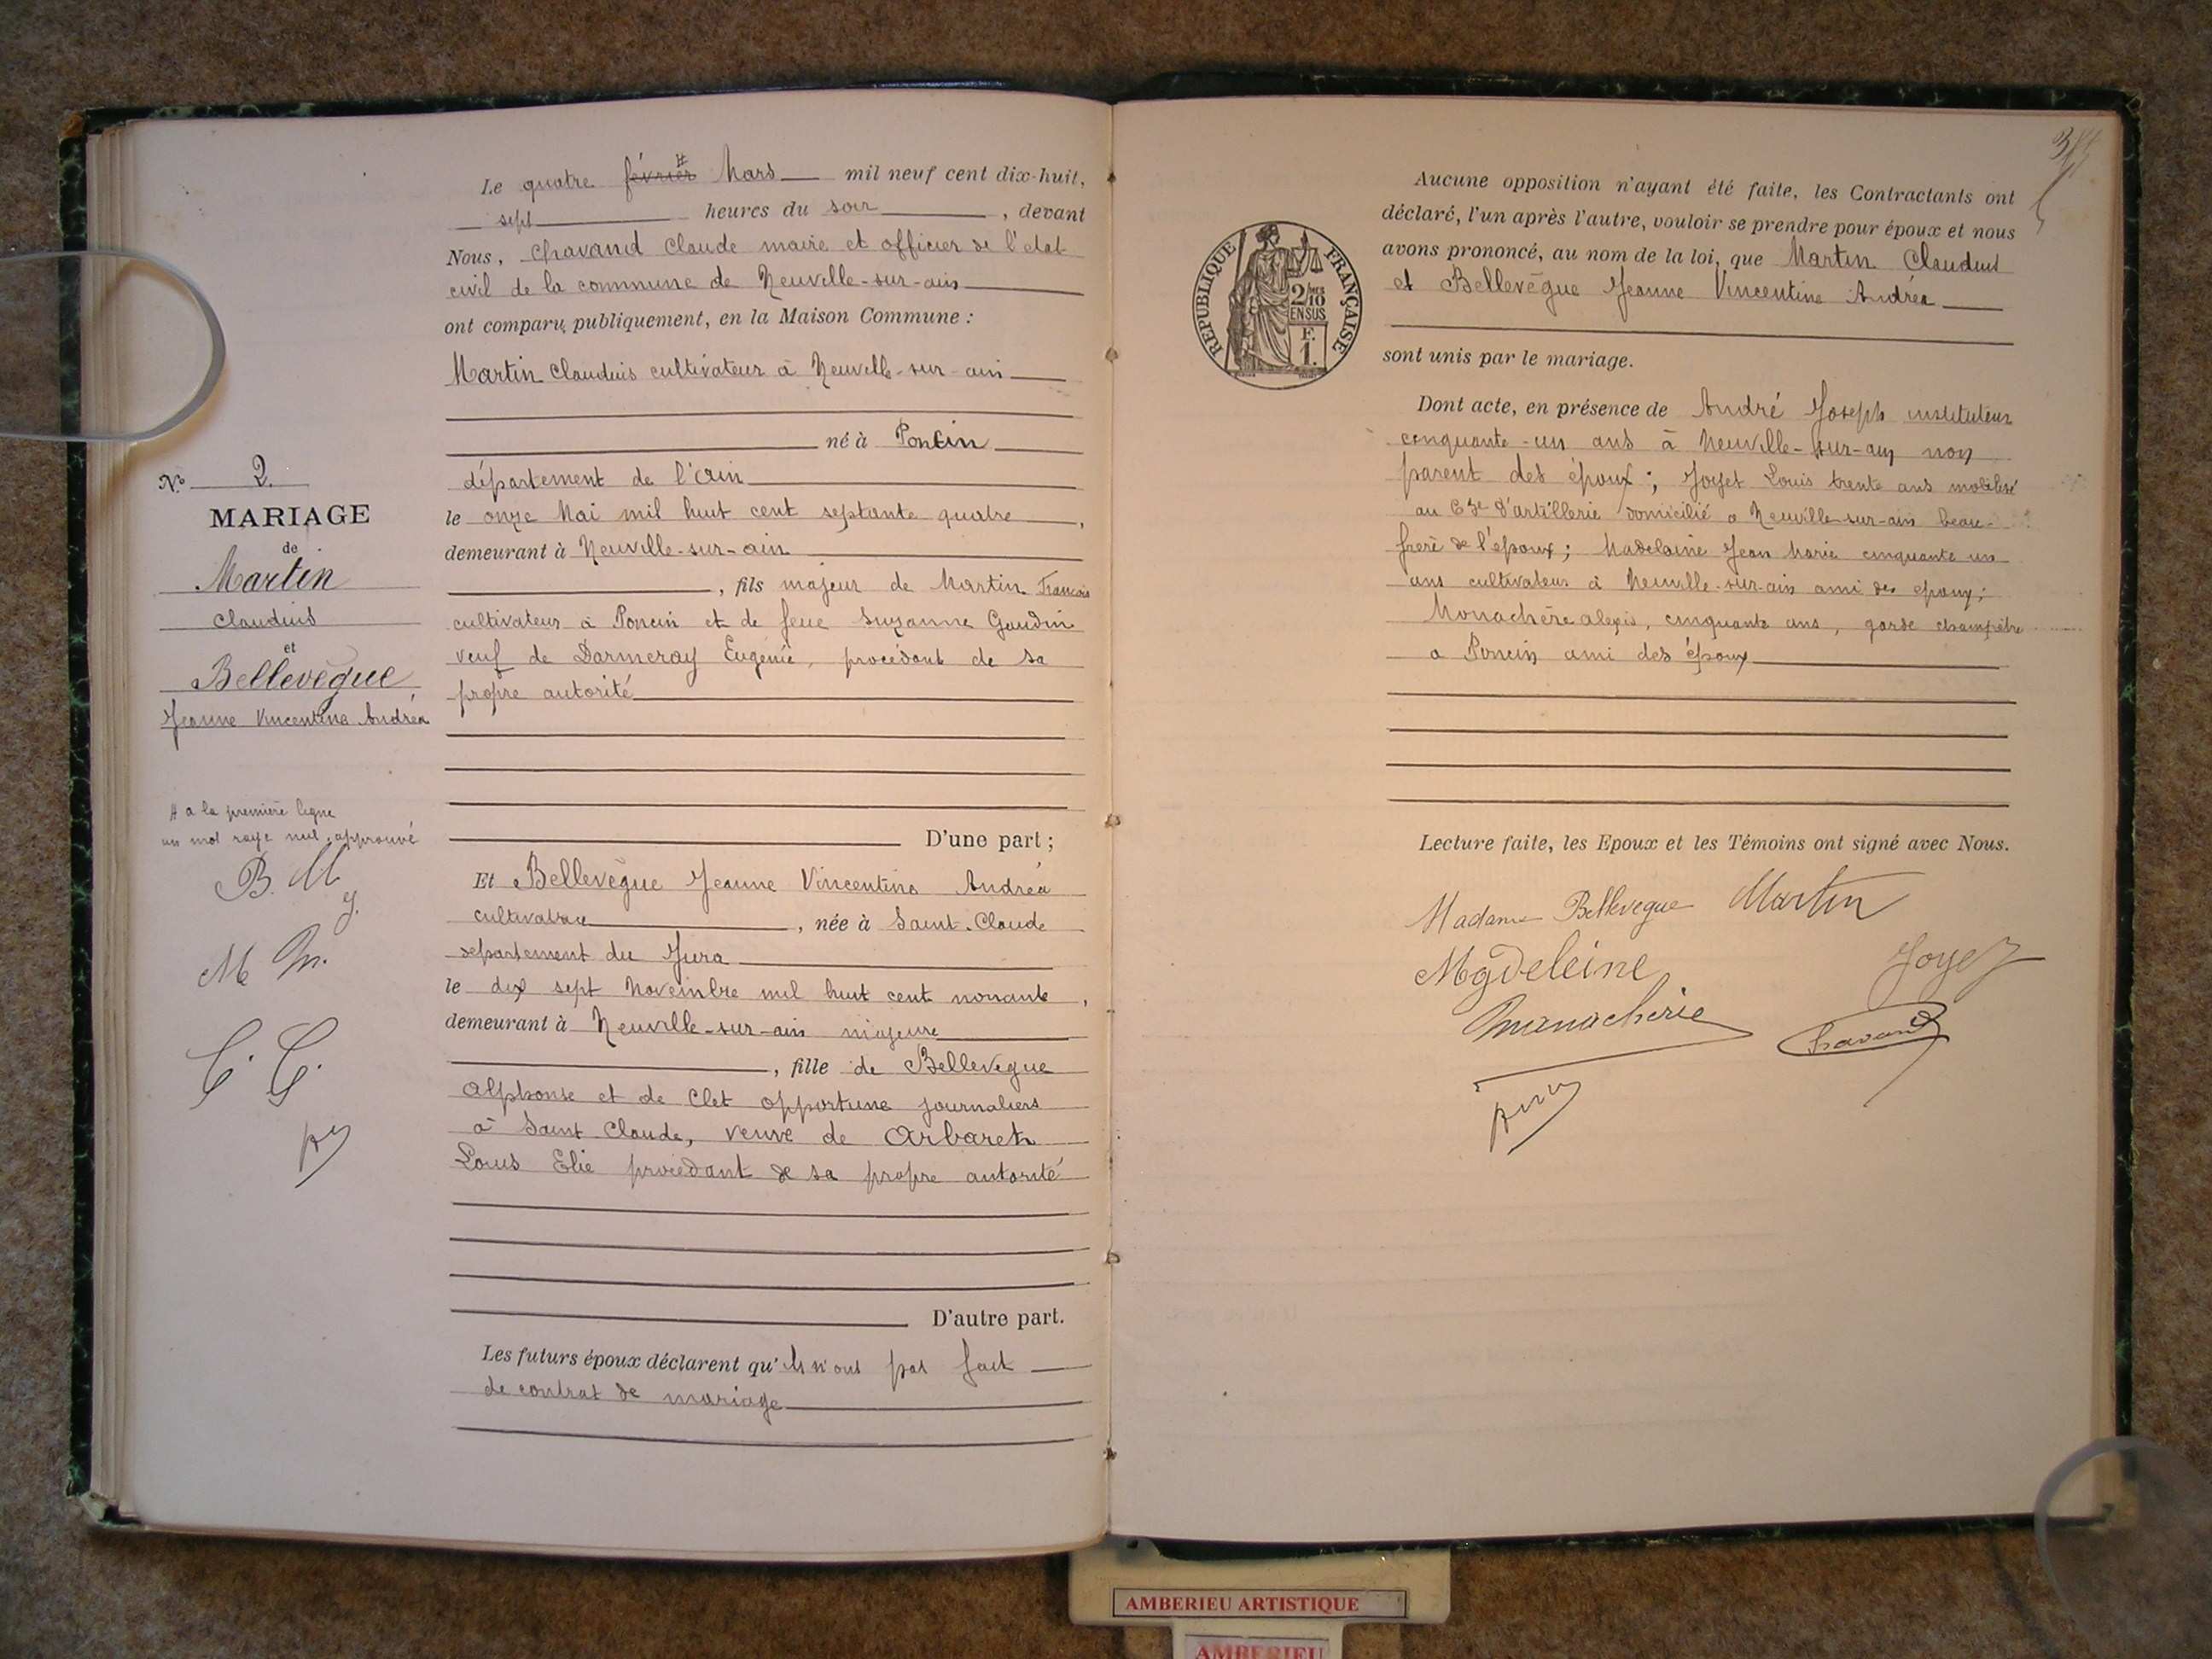 Le quatre février # Mars mil neuf cent dix-huit,
sept heures du soir, devant
Nous, Chavand Claude maire et officier de l'état
civil de la commune de Neuville-sur-ain
ont comparu publiquement, en la Maison Commune :
Martin Claudius cultivateur à Neuville-sur-ain
né à Poncin
département de l'ain
le onze Mai mil huit cent septante quatre,
demeurant à Neuville-sur-ain
, fils majeur de Martin François
cultivateur à Poncin et de feue Suzanne Gaudin
veuf de Darmeray Eugénie, procédant de sa
propre autorité
D'une part ;
Et Bellevègue Jeanne Vincentine Andréa
cultivatrice, née à Saint-Claude
département du Jura
le dix sept Novembre mil huit cent nonante,
demeurant à Neuville-sur-ain majeure
, fille de Bellevegue
Alphonse et de Clet opportune journaliers
à Saint Claude, veuve de Arbaretz
Louis Elie procédant de sa propre autorité
D'autre part.
Les futurs époux déclarent qu'ils n'ont pas fait
de contrat de mariage
No 2.
MARIAGE
de
Martin
Claudius
et
Bellevègue
Jeanne Vincentine Andréa
# a la première ligne
un mot rayé nul, approuvé
B. M
J.
M M.
C. C.
Aucune opposition n'ayant été faite, les Contractants ont
déclaré, l'un après l'autre, vouloir se prendre pour époux et nous
avons prononcé, au nom de la loi, que Martin Claudius
et Bellevègue Jeanne Vincentine Andréa
sont unis par le mariage.
Dont acte, en présence de André Joseph instituteur
cinquante-un ans à Neuville-sur-ain non
parent des époux ; Joyet Louis trente ans mobilisé
au 63e d'artillerie domicilié a Neuville-sur-ain beau-
frère de l'epoux ; Madelaine Jean Marie cinquante un
ans cultivateur à Neuville-sur-ain ami des epoux ;
Monachère alexis, cinquante ans, garde champêtre
a Poncin ami des époux
Lecture faite, les Epoux et les Témoins ont signé avec Nous.
Madame Bellevegue Martin
Mgdeleine Joyet
manacherie Chavand
REPUBLIQUE FRANÇAISE
2/10
EN SUS
F.
1.
AMBERIEU ARTISTIQUE
AMBERIEU